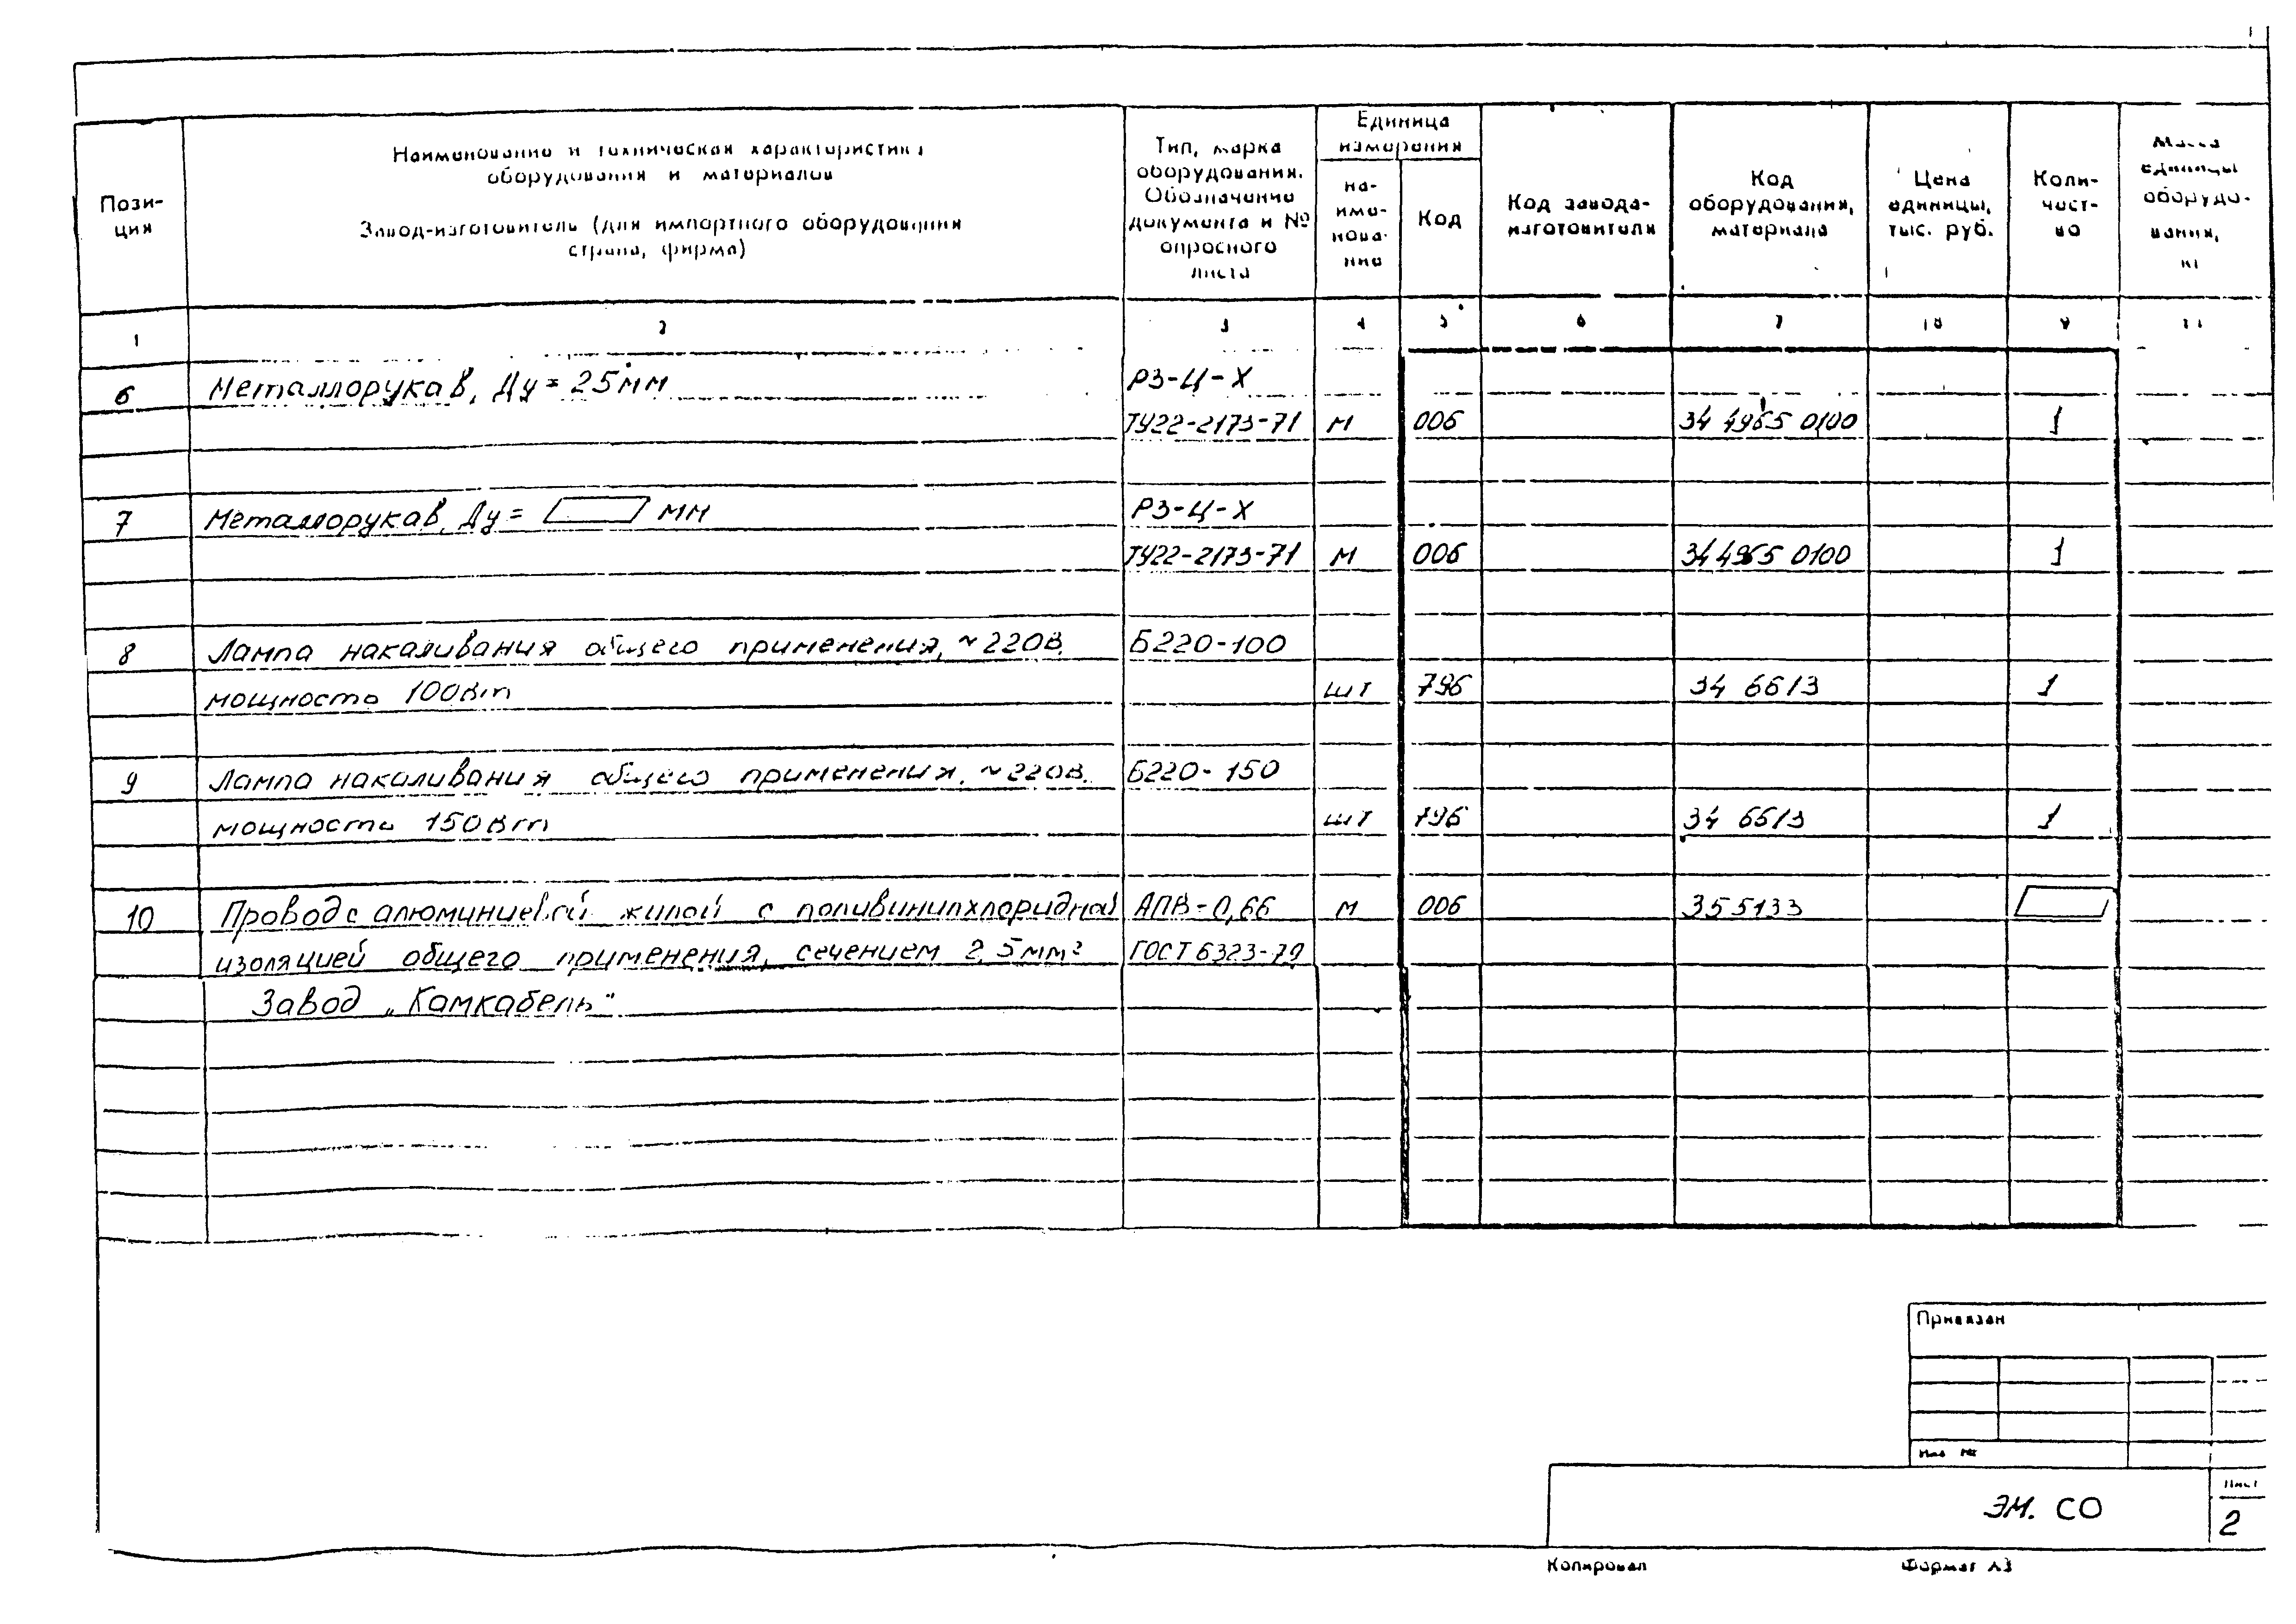 Пози-
ция
Наименование и техническая характеристика
оборудования и материалов
Завод-изготовитель (для импортного оборудования
страна, фирма)
Тип, марка
оборудования.
Обозначение
документа и №
опросного
листа
Единица
измерения
на-
име-
нова-
ние
Код
Код завода-
изготовителя
Код
оборудования,
материала
Цена
единицы,
тыс. руб.
Коли-
чест-
во
Масса
единицы
оборудо-
вания,
кг
1 2 3 4 5 6 7 8 9
6 Металлорукав, Ду = 25мм РЗ-Ц-Х
ТУ22-2173-71 м 006 34 4965 0100 1
7 Металлорукав, Ду = мм РЗ-Ц-Х
ТУ22-2173-71 м 006 34 4965 0100 1
8 Лампа накаливания общего применения, ~220В, Б220-100
мощность 100Вт шт 796 34 6613 1
9 Лампа накаливания общего применения, ~220В, Б220-150
мощность 150Вт шт 796 34 6613 1
10 Провод с алюминиевой жилой с поливинилхлоридной АПВ-0,66 м 006 355133
изоляцией общего применения, сечением 2,5мм² ГОСТ 6323-79
Завод „Камкабель"
Привязан
Инв №
ЭМ. СО
Лист
2
Копировал Формат А3